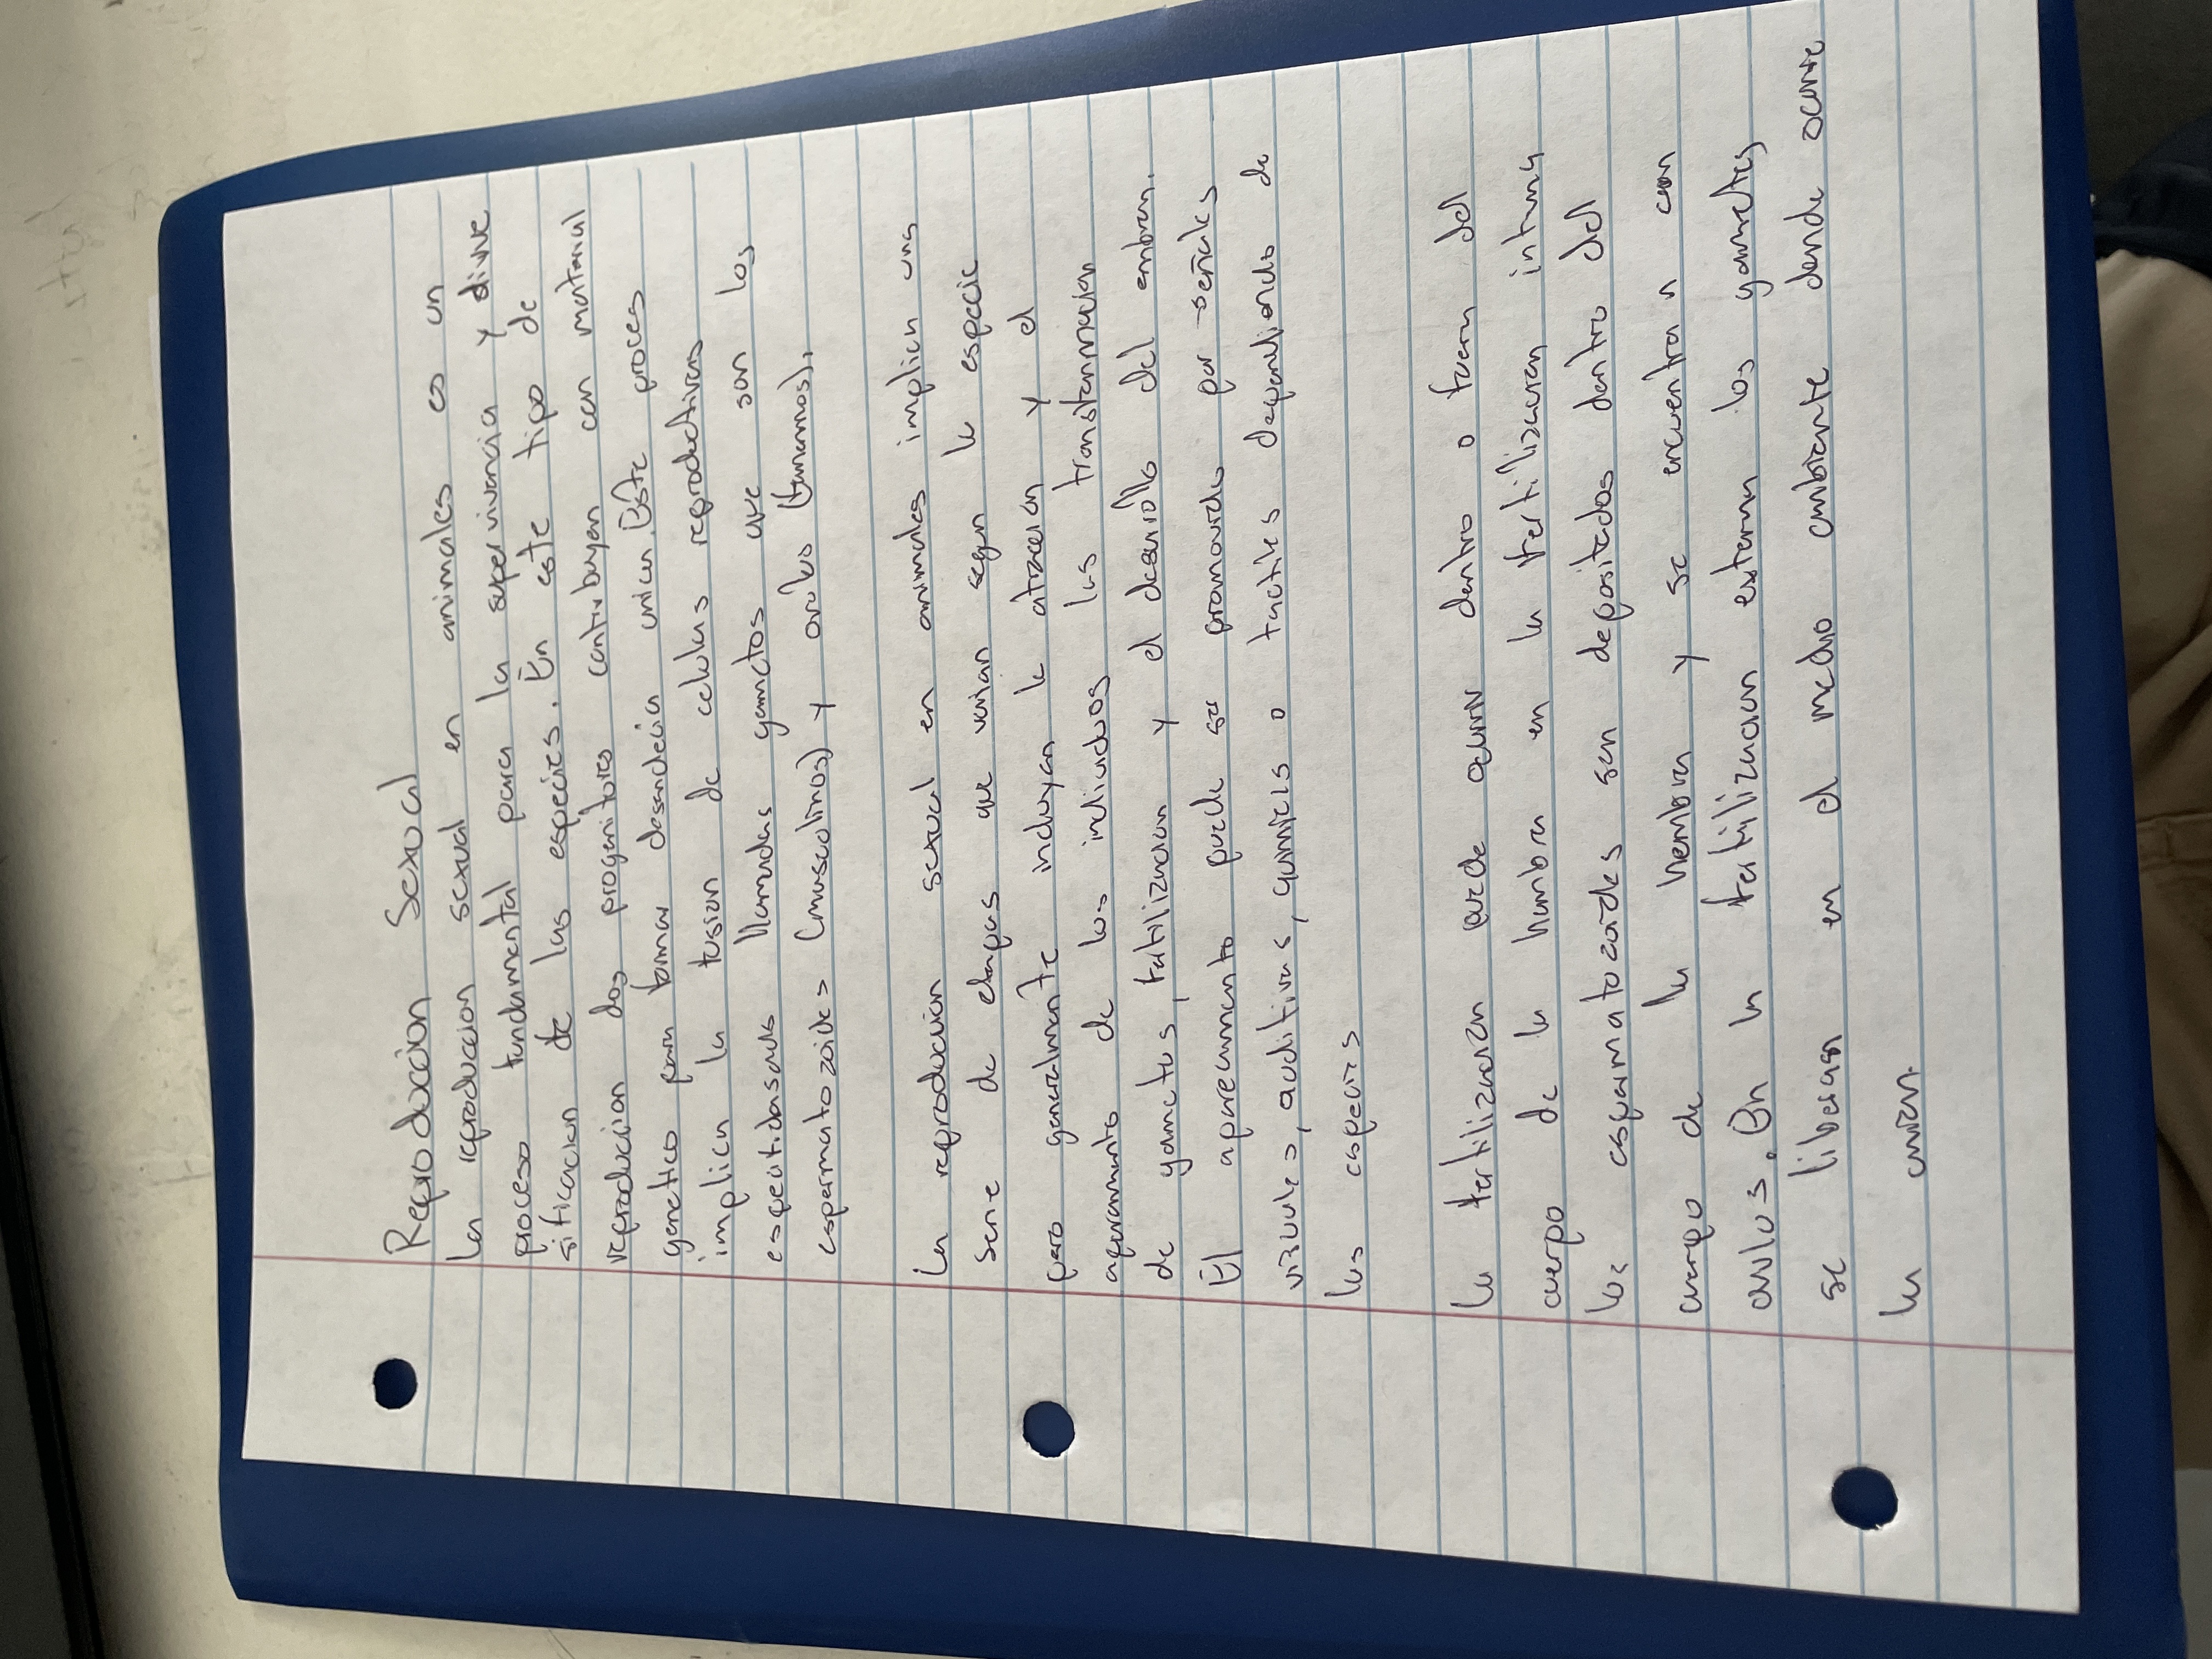 Reproduccion Sexual
La reproduccion sexual en animales es un
proceso fundamental para la supervivencia y dive
sificacion de las especies. En este tipo de
reproducion dos progenitores contribuyen con material
genetico para formar desendecia unica. Este proces
implica la fusion de celulas reproductivas
llamadas gametos que son los
espermatozoides (masculinos) y ovulos (femeninos).
La reproducion sexual en animales implica una
serie de etapas que varian segun la especie
pero generalmente incluyen la atraccion y el
apareamiento de los individuos las transformacion
de gametos, fertilizacion y el desarrollo del embrion.
El apareamiento puede se promovido por señales
visuales, auditivas, quimicas o tactiles dependiendo de
las especies
La fertilizacion puede ocurrir dentro o fuera del
cuerpo de la hembra en la fertilizacion interna
los espermatozoides son depositados dentro del
cuerpo de la hembra y se encuentran con
ovulos. En la fertilizacion externa los gametos
se liberan en el medio ambiente donde ocurre
la union.